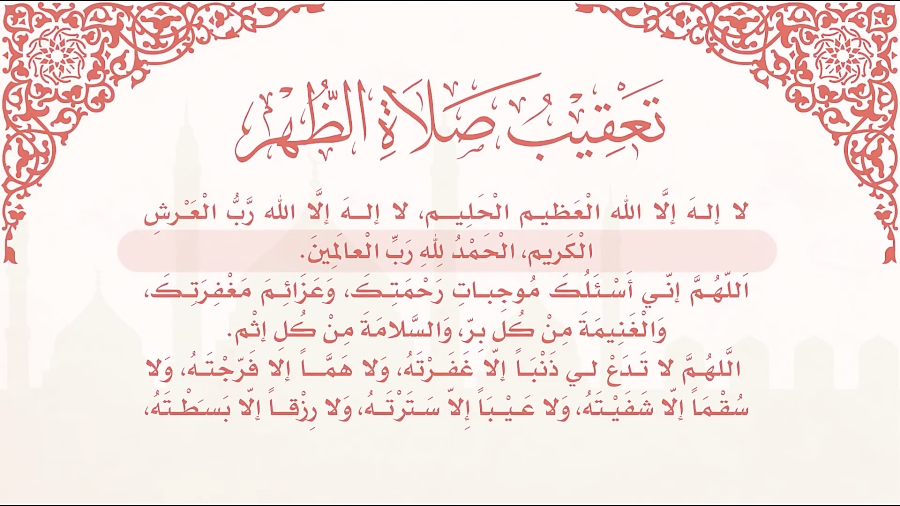 تَعْقِيبُ صَلَاةِ الظُّهْرِ
لا إلـهَ إلَّا الله الْعَظيـم الْحَليـم، لا إلـهَ إلَّا الله رَبُّ الْعَـرْشِ
الْكَريم، الْحَمْدُ لِلّهِ رَبِّ الْعالَمِينَ.
اَللّهُـمَّ إنّـي أَسْـئَلُكَ مُوجِبـاتِ رَحْمَتِـكَ، وَعَزَائِـمَ مَغْفِرَتِـكَ،
وَالْغَنِيمَةَ مِنْ كُلِّ بِرٍّ، وَالسَّلامَةَ مِنْ كُلِ اِثْم.
الَّلهُـمَّ لا تَـدَعْ لـي ذَنْبَـاً إلّا غَفَـرْتَهُ، وَلا هَمَّـاً إلا فَرَّجْتَـهُ، وَلا
سُقْمَاً إلّا شَفَيْـتَهُ، وَلا عَـيْـبَاً إِلّا سَـتَرْتَـهُ، وَلا رِزْقـاً إلّا بَسَطْـتَهُ،